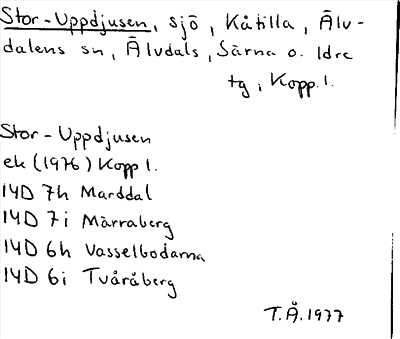 Stor-Uppdjusen, sjö, Kåtilla, Älv-
dalens sn, Älvdals, Särna o. Idre
tg, Kopp. l.
Stor-Uppdjusen
ek (1976) Kopp l.
14D 7h Marddal
14D 7i Märraberg
14D 6h Vasselbodarna
14D 6i Tvåråberg
T.Å.1977